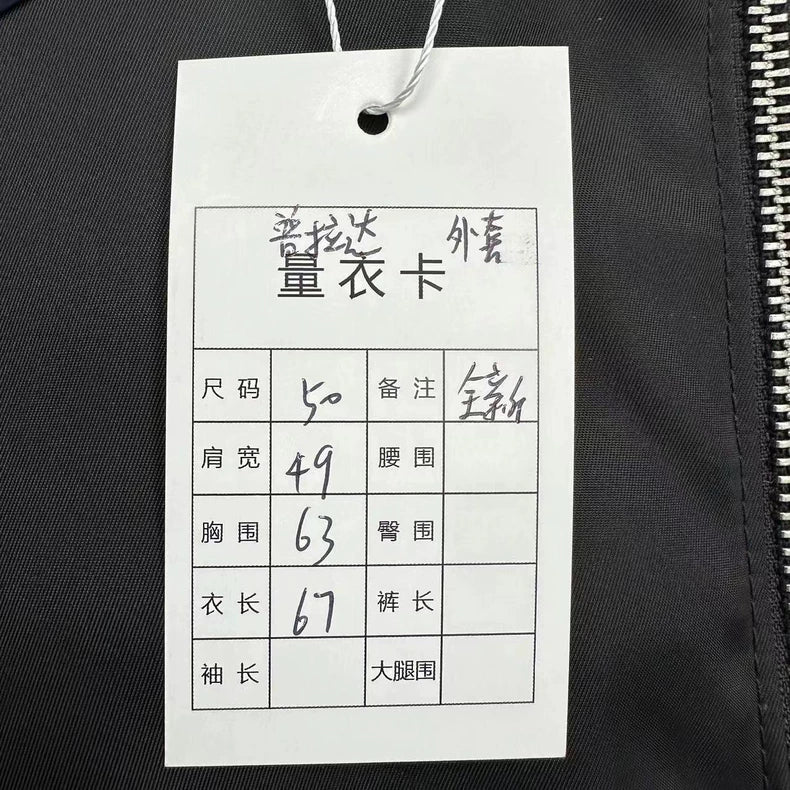 普拉达 外套
量衣卡
尺码 50 备注 全新
肩宽 49 腰围
胸围 63 臀围
衣长 67 裤长
袖长 大腿围